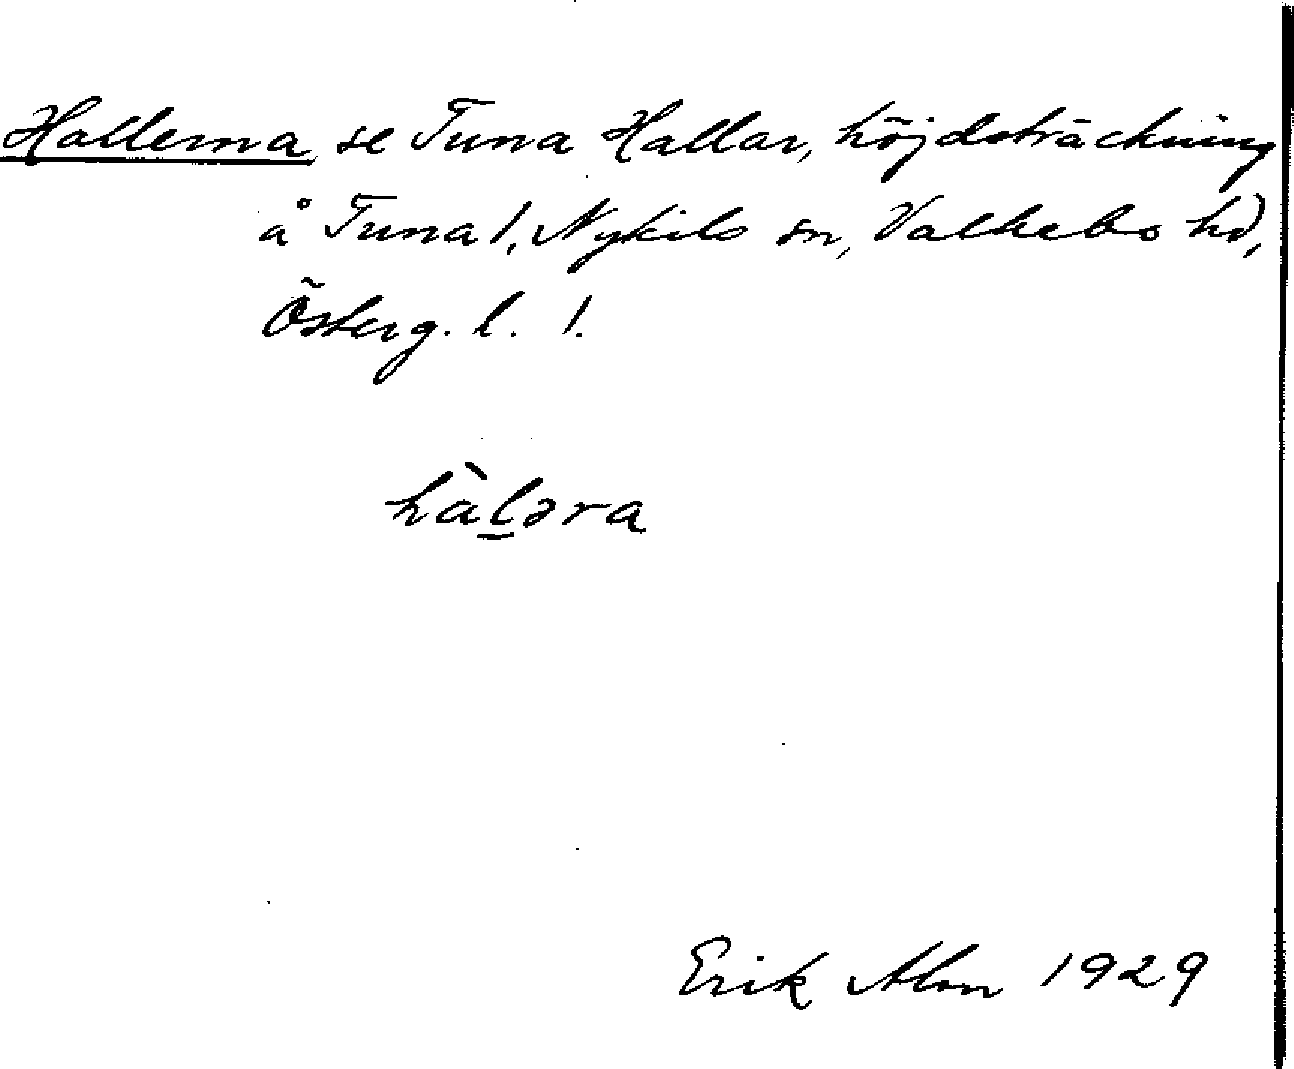 Hallerna se Tuna Hallar, höjdsträckning
å Tuna 1, Nykils sn, Valkebo hd,
Österg. l. 1.
hàl̲əra
Erik Alm 1929